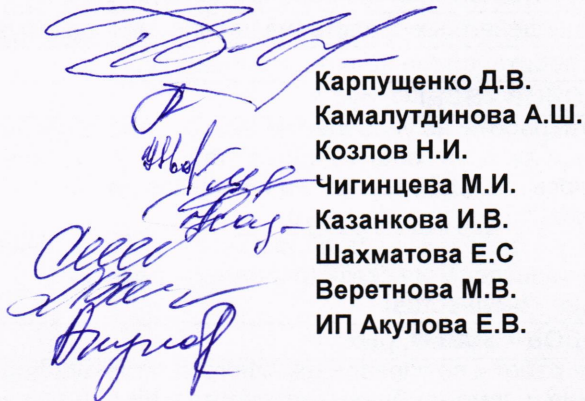 Карпущенко Д.В.
Камалутдинова А.Ш.
Козлов Н.И.
Чигинцева М.И.
Казанкова И.В.
Шахматова Е.С
Веретнова М.В.
ИП Акулова Е.В.